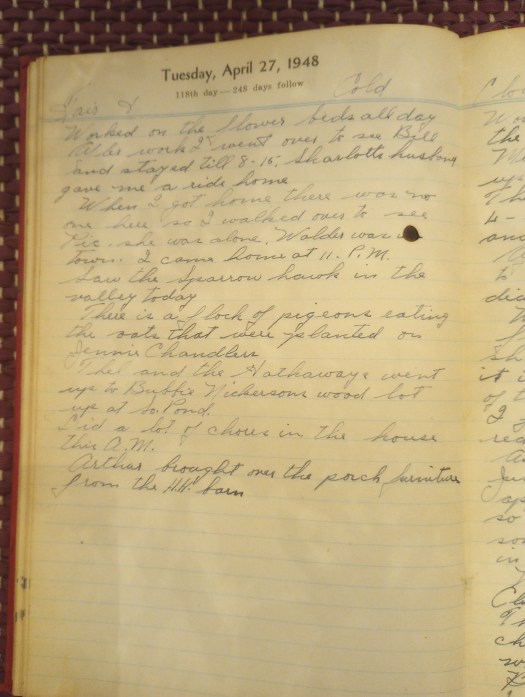 Tuesday, April 27, 1948
118th day — 248 days follow
Fair & Cold
Worked on the flower beds all day
After work I went over to see Bill
and stayed till 8-15, Sharlotts husband
gave me a ride home
When I got home there was no
one here so I walked over to see
she was alone. Walder was in
town. I came home at 11. P.M.
Saw the sparrow hawk in the
valley today
There is a flock of pigeons eating
the oats that were planted on
Jennie Chandlers
Thel and the Hathaways went
up to Bubbie Nickersons wood lot
up at So. Pond.
Did a lot of chores in the house
this A.M.
Arthur brought over the porch furniture
from the H.H. barn